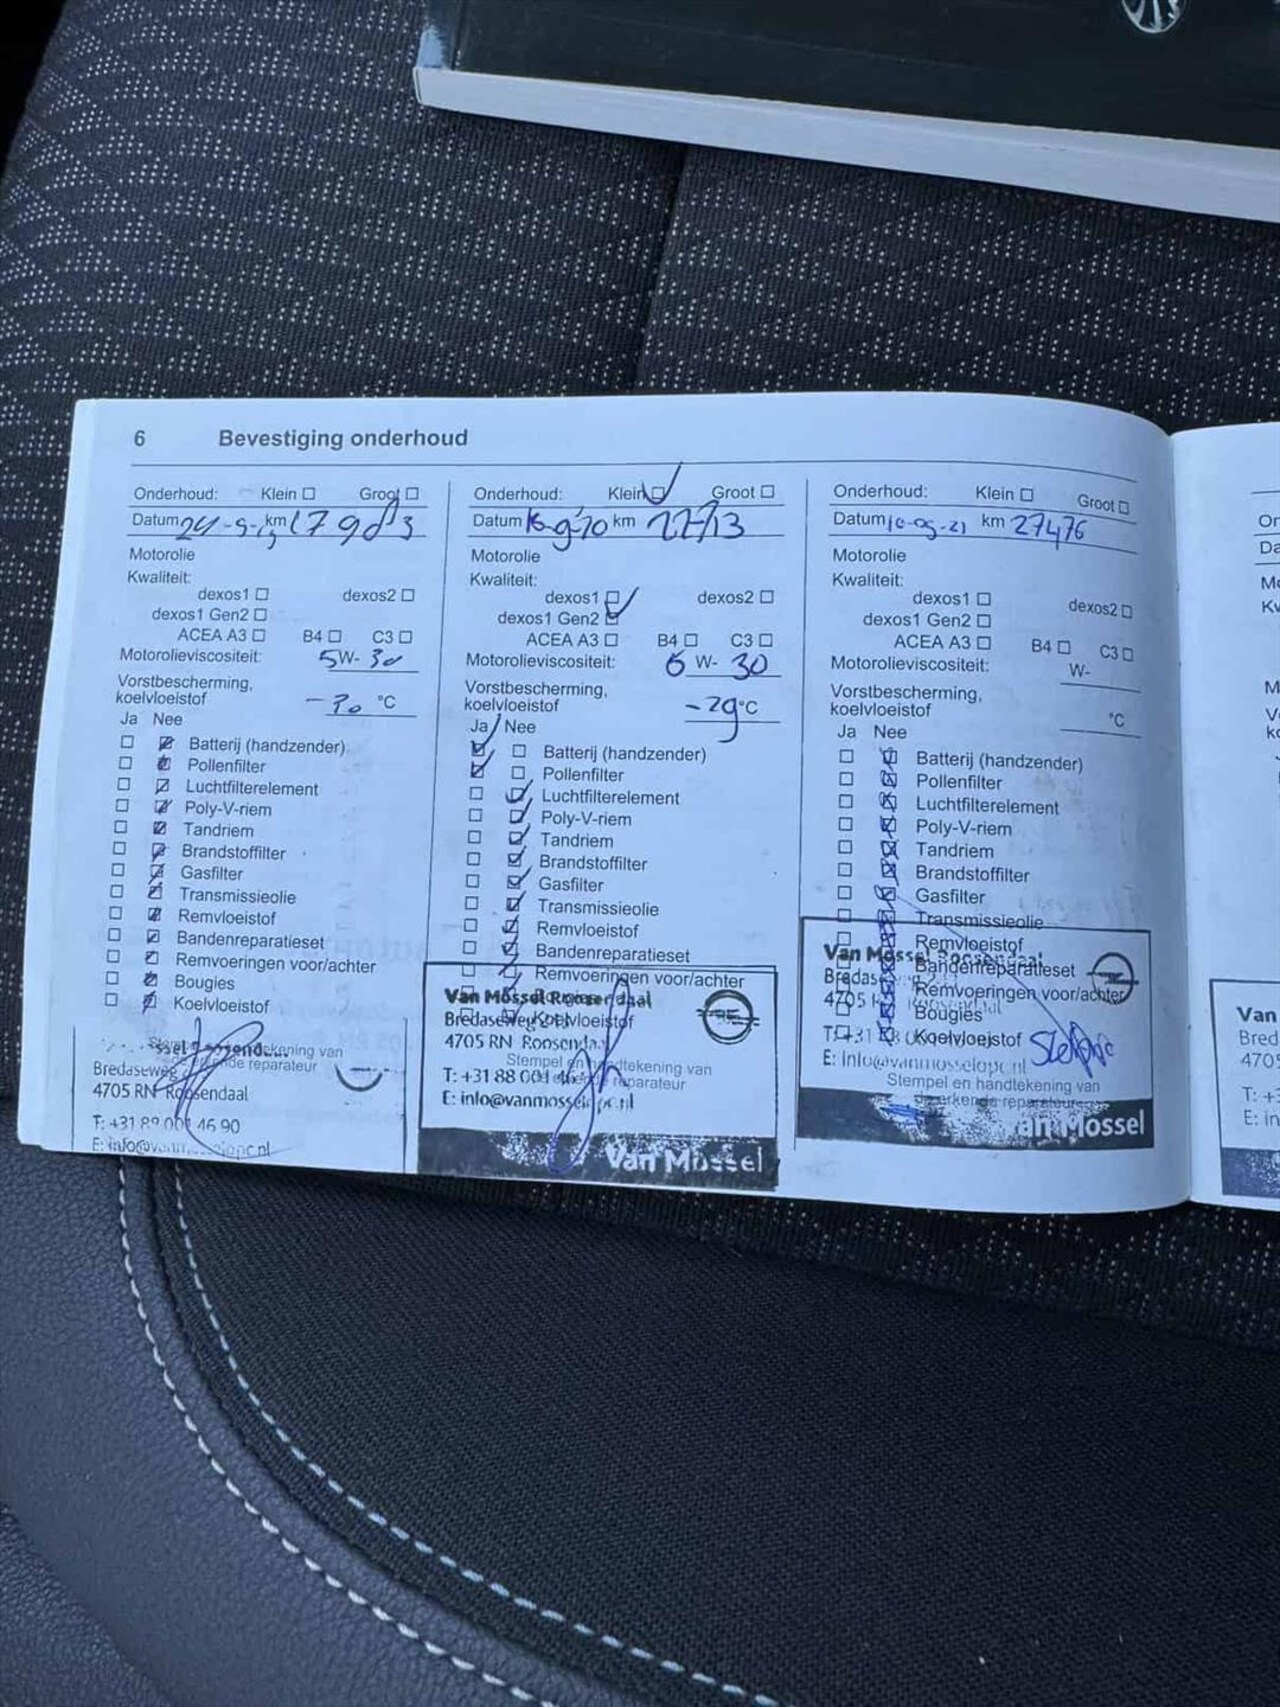 6 Bevestiging onderhoud
Onderhoud: Klein Groot
Datum km 17983
Motorolie
Kwaliteit:
dexos1 dexos2
dexos1 Gen2
ACEA A3 B4 C3
Motorolieviscositeit: 5W-30
Vorstbescherming,
koelvloeistof -30 °C
Ja Nee
Batterij (handzender)
Pollenfilter
Luchtfilterelement
Poly-V-riem
Tandriem
Brandstoffilter
Gasfilter
Transmissieolie
Remvloeistof
Bandenreparatieset
Remvoeringen voor/achter
Bougies
Koelvloeistof
Stempel en handtekening van
erkende reparateur
Bredaseweg
4705 RN Roosendaal
T: +31 88 001 46 90
E: info@vanmosselopel.nl
Onderhoud: Klein Groot
Datum km
Motorolie
Kwaliteit:
dexos1 dexos2
dexos1 Gen2
ACEA A3 B4 C3
Motorolieviscositeit: W- 30
Vorstbescherming,
koelvloeistof -29 °C
Ja Nee
Batterij (handzender)
Pollenfilter
Luchtfilterelement
Poly-V-riem
Tandriem
Brandstoffilter
Gasfilter
Transmissieolie
Remvloeistof
Bandenreparatieset
Remvoeringen voor/achter
Koelvloeistof
Van Mossel Roosendaal
Bredaseweg
4705 RN Roosendaal
Stempel en handtekening van
reparateur
T: +31 88 001 46
E: info@vanmosselopel.nl
Van Mossel
Onderhoud: Klein Groot
Datum 10-05-21 km 27476
Motorolie
Kwaliteit:
dexos1 dexos2
dexos1 Gen2
ACEA A3 B4 C3
Motorolieviscositeit: W-
Vorstbescherming,
koelvloeistof °C
Ja Nee
Batterij (handzender)
Pollenfilter
Luchtfilterelement
Poly-V-riem
Tandriem
Brandstoffilter
Gasfilter
Transmissieolie
Remvloeistof
Bandenreparatieset
Remvoeringen voor/achter
Bougies
Koelvloeistof
Van Mossel Roosendaal
4705
E: info@vanmosselopel.nl
Stempel en handtekening van
de erkende reparateur
Van Mossel
Van
Bred
4705
T: +3
E: in